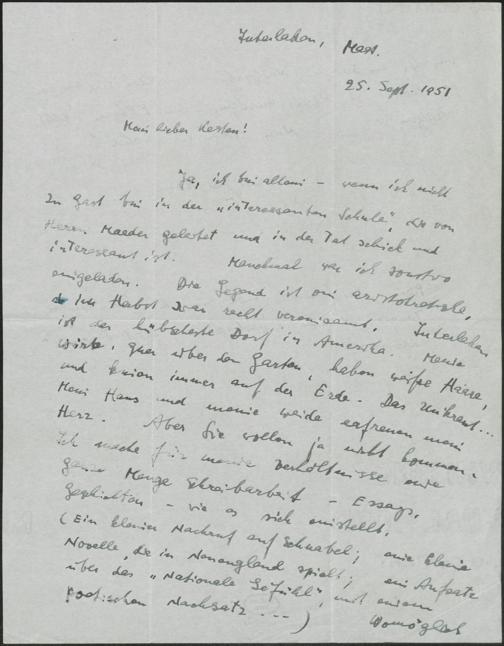 Interlaken, Mass.
25. Sept. 1951
Mein lieber Kesten!
Ja, ich bin allein – wenn ich nicht
zu Gast bin in der „interessanten Schule", die von
Herrn Maeder geleitet und in der Tat schick und
interessant ist. Manchmal war ich sonstwo
eingeladen. Die Gegend ist ein aristokratische,
im Herbst zwar recht vereinsamt. Interlaken
ist das hübscheste Dorf in Amerika. Meine
Wirte, quer über den Garten, haben weisse Haare,
und knien immer auf der Erde. Das Unkraut...
Mein Haus und meine Weide erfreuen mein
Herz. Aber Sie wollen ja nicht kommen.
Ich mache für meine Verhältnisse eine
ganze Menge Schreibarbeit – Essays,
Geschichten – wie es sich einstellt.
(Ein kleiner Nachruf auf Schnabel; eine kleine
Novelle, die in Neuengland spielt; ein Aufsatz
über das „Nationale Gefühl", mit einem
poetischen Nachsatz ...)
Womöglich